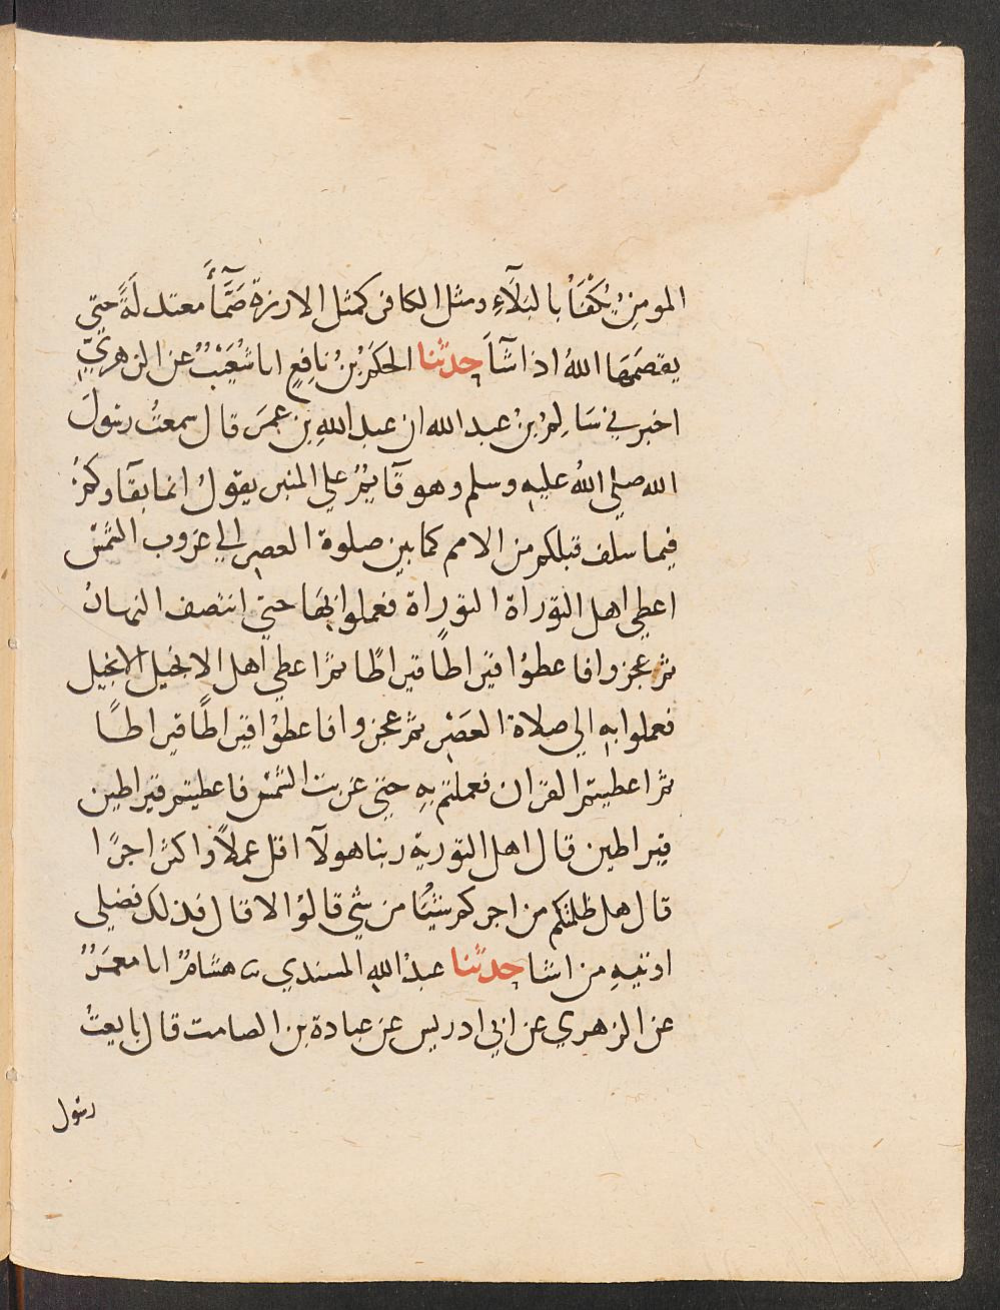 المومنِ يُكْفَأُ بالبَلَآءِ ومثل الكافر كمثل الارزة صَمَّآءً معتدلَةً حتي
يقصَمَهَا اللهُ اذا شآءَ حدثنا الحَكَمُ بْنُ نافِعٍ انا شُعَيْبٌ عن الزهريّ
اخبرني سَالِمُ بْنُ عبد الله ان عبد اللهِ بن عمرَ قال سمعتُ رسولَ
الله صلي اللهُ عليه وسلم وهو قآئمٌ علي المنبر يقولُ انما بقآوكمْ
فيما سلف قبلكم من الامم كما بين صلوة العصر الي غروب الشمس
اعطي اهل التوراة التوراة فعملوا بِهَا حتي انتصف النهارُ
ثم عجزوا فاعطوُا قيراطًا قيراطًا ثمّ اعطي اهل الانجيل الانجيل
فعملوا به الي صلاة العصْرِ ثم عجزوا فاعطوُا قيراطًا قيراطًا
ثم اعطيتم القران فعملتم بِهِ حتي غربت الشمس فاعطيتم قيراطين
قيراطين قال اهل التورية ربنا هولآ اقل عملاً واكثر اجرًا
قال هل ظلمتكم من اجركم شيْئًا من شيٍ قالوْا لا قال فذلك فضلي
اوتيهِ من اشا حدثنا عبدُ الله المسندي ثنا هشامٌ انا معمَرٌ
عن الزهري عن ابي ادريس عن عبادة بن الصامت قال بايعتُ
رسول